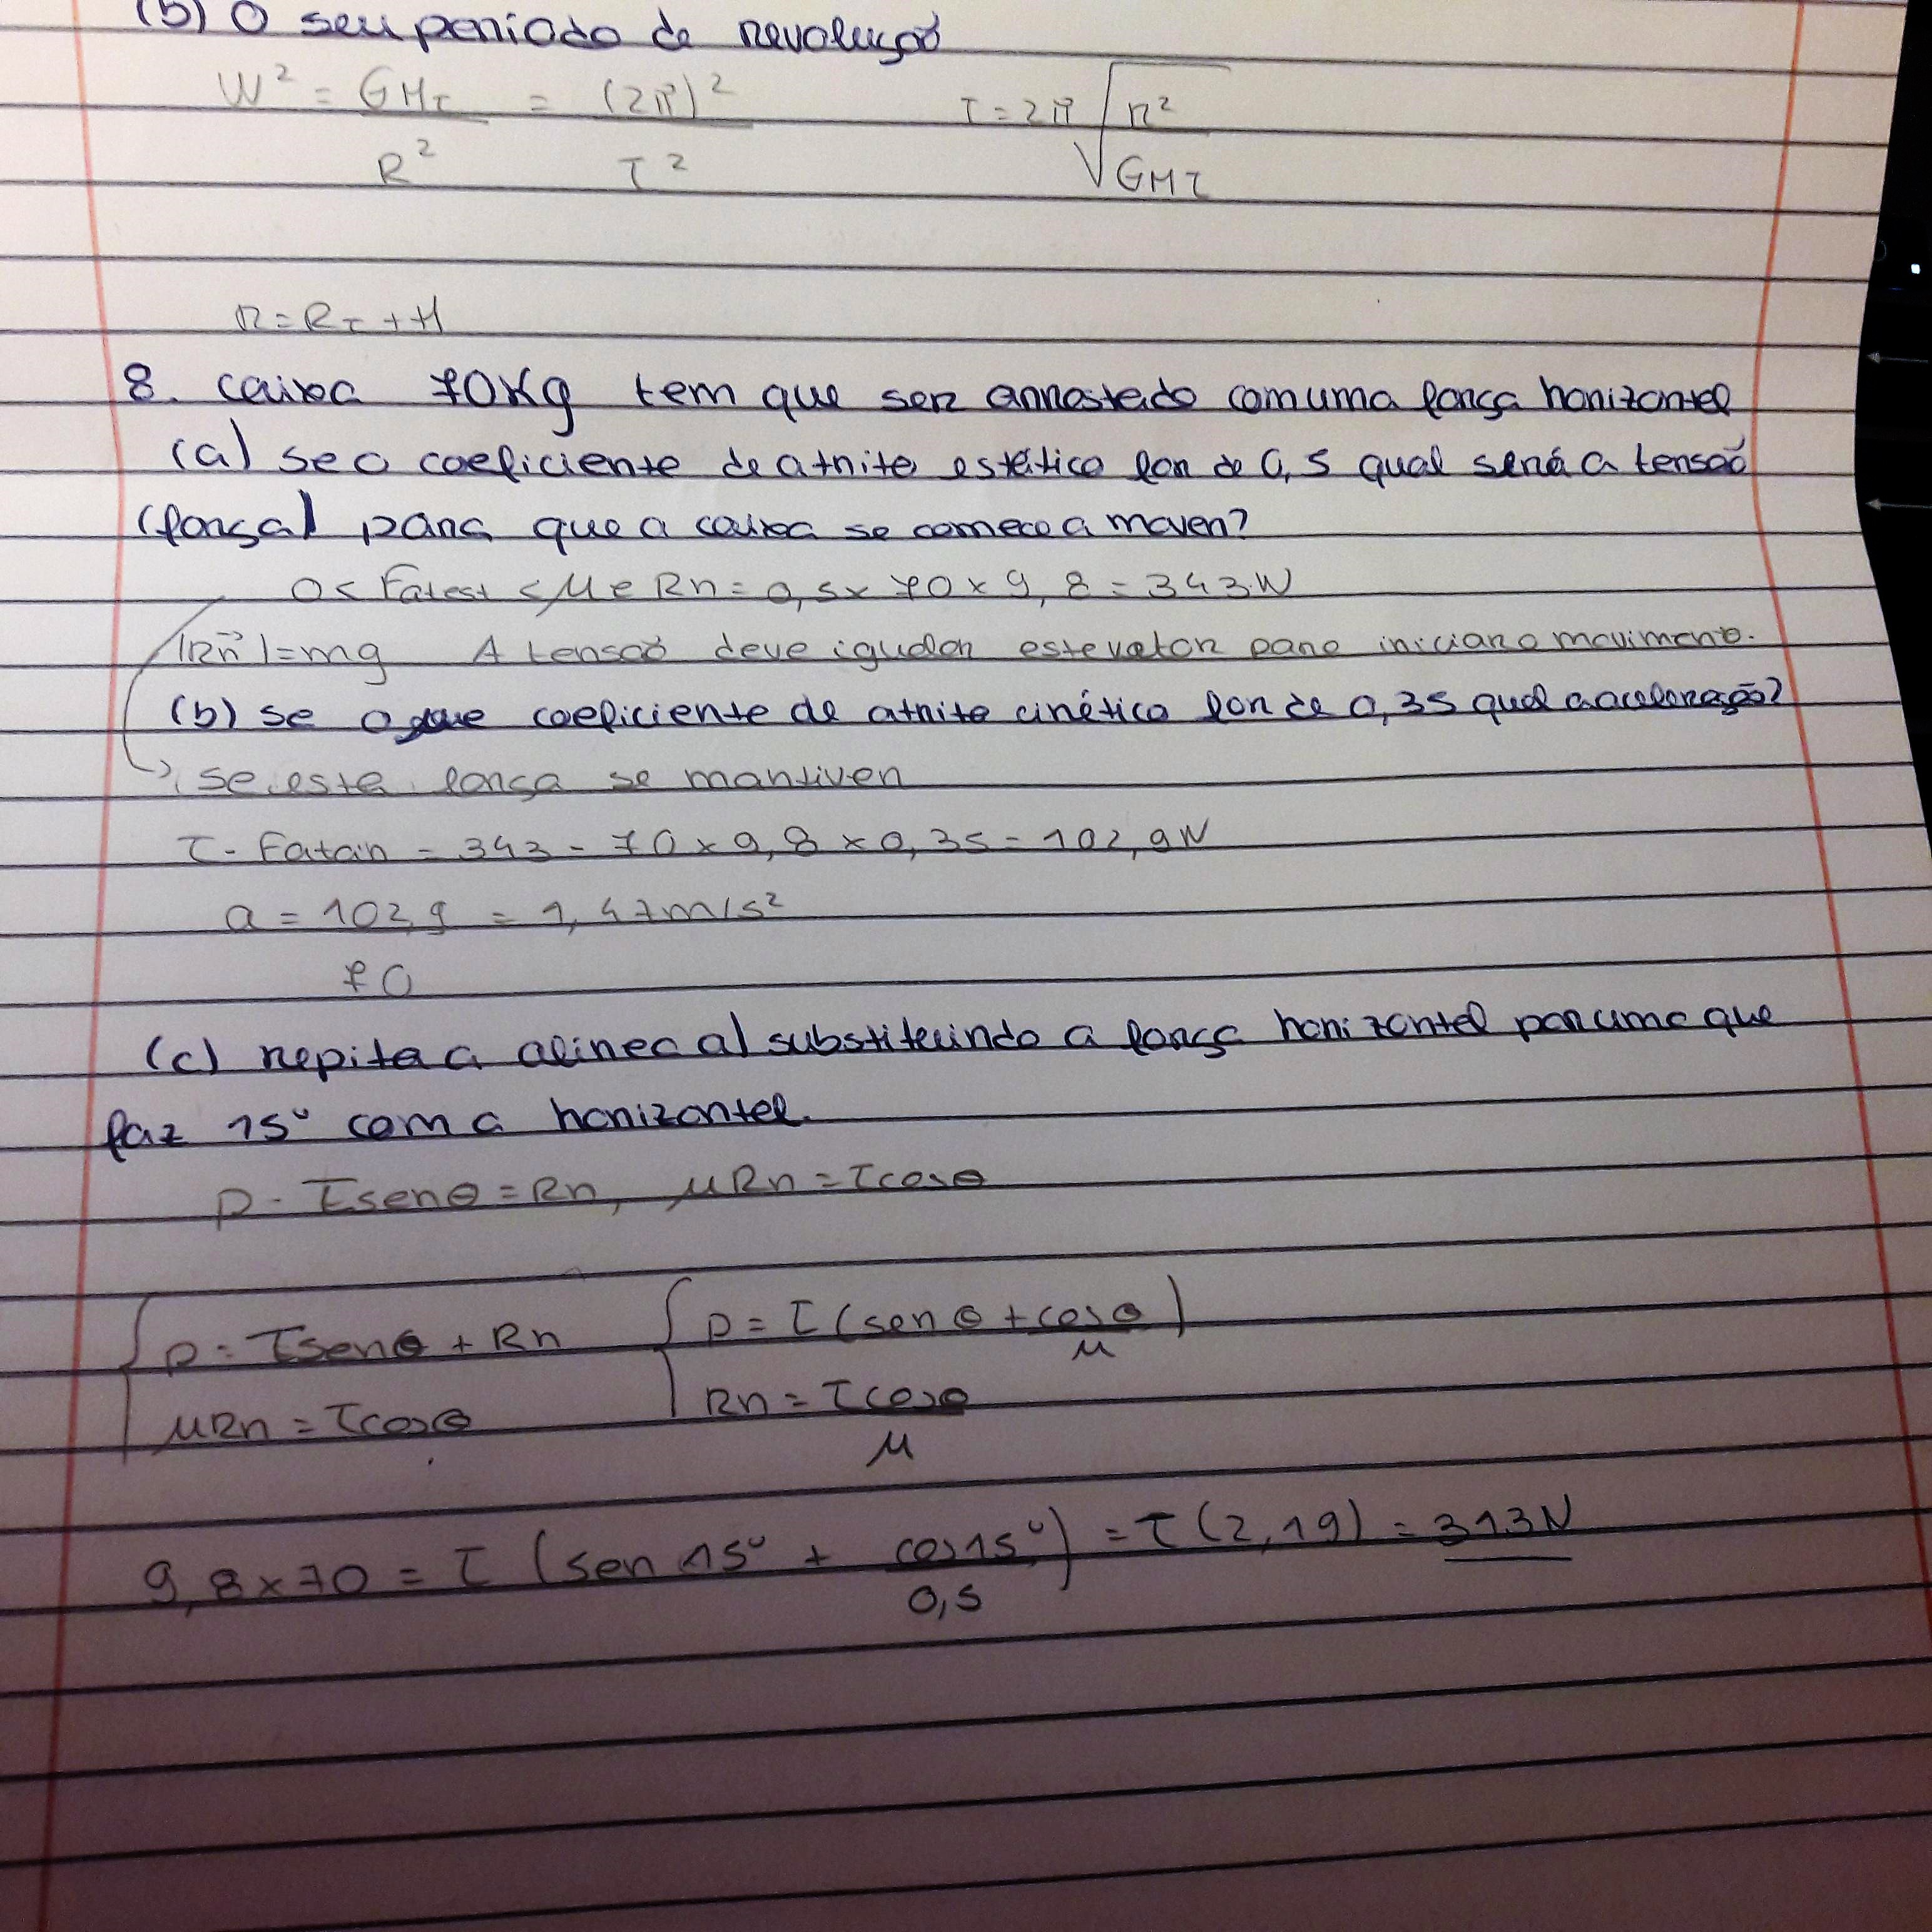 (b) O seu periodo de revolução
W² = GMT / R² = (2π)² / T²    T = 2π √(r² / GMT)
r = RT + H
8. caixa 70Kg tem que ser arrastado com uma força horizontal
(a) se o coeficiente de atrito estático for de 0,5 qual será a tensão
(força) para que a caixa se comece a mover?
0 < Fatest < μe Rn = 0,5 x 70 x 9,8 = 343 N
|Rn| = mg    A tensão deve igualar este valor para iniciar o movimento.
(b) se o coeficiente de atrito cinético for de 0,35 qual a aceleração?
→ se esta força se mantiver
T - Fatcin = 343 - 70 x 9,8 x 0,35 = 102,9 N
a = 102,9 / 70 = 1,47 m/s²
(c) repita a alinea a) substituindo a força horizontal por uma que
faz 15° com a horizontal.
P - Tsenθ = Rn, μRn = Tcosθ
{ P = Tsenθ + Rn    { P = T (senθ + cosθ / μ)
μRn = Tcosθ    Rn = Tcosθ / μ
9,8 x 70 = T (sen 15° + cos 15° / 0,5) = T (2,19) = 313 N